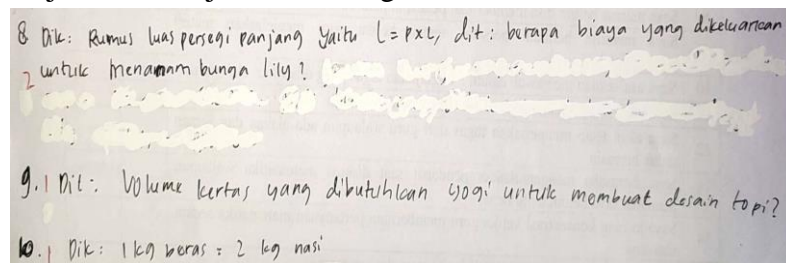 8 Dik: Rumus luas persegi panjang yaitu L = p x L, dit: berapa biaya yang dikeluarkan
2 untuk menanam bunga lily?
9. 1 Dit: Volume kertas yang dibutuhkan yogi untuk membuat desain topi?
10. 1 Dik: 1 kg beras = 2 kg nasi